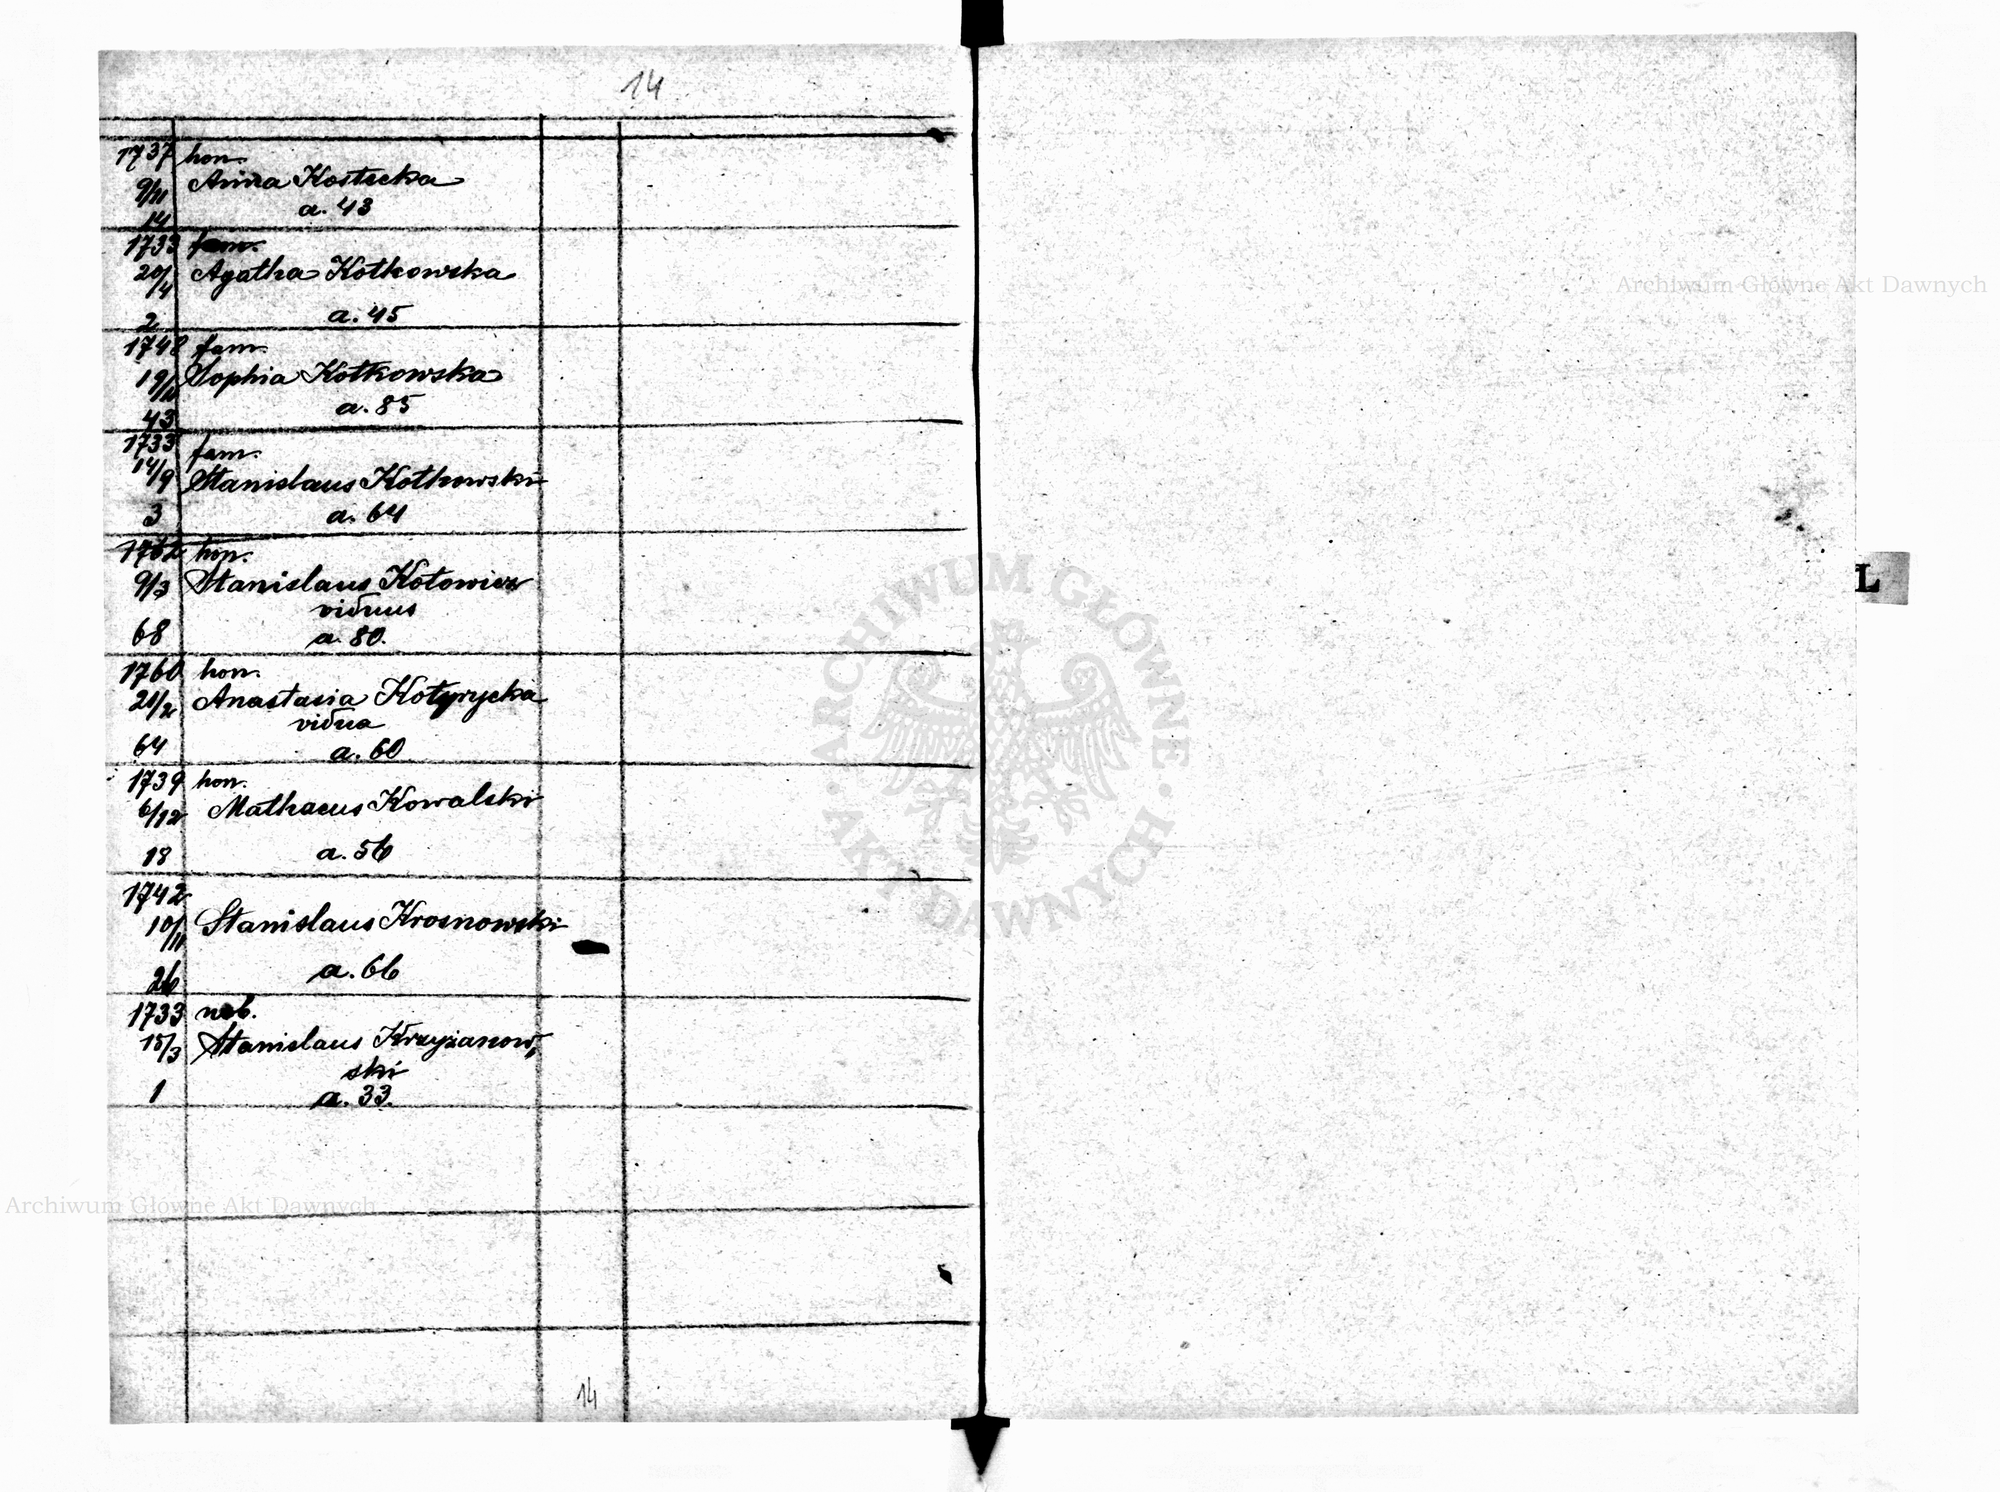 14
1737 hon.
9/11 Anna Kostecka
a. 43
14
1733 fam.
20/4 Agatha Kotkowska
2 a. 45
1748 fam.
19/2 Sophia Kotkowska
a. 85
43
1733 fam.
14/9 Stanislaus Kotkowski
3 a. 64
1762 hon.
9/3 Stanislaus Kotowicz
viduus
68 a. 80.
1760 hon.
21/2 Anastasia
vidua
64 a. 60
1739 hon.
6/12 Mathaeus Kowalski
18 a. 56
1742
10/11 Stanislaus Krosnowski
26 a. 66
1733 nob.
15/3 Stanislaus Krzyżanow,
ski
1 a. 33.
14
L
Archiwum Główne Akt Dawnych
Archiwum Główne Akt Dawnych
ARCHIWUM GŁÓWNE
AKT DAWNYCH